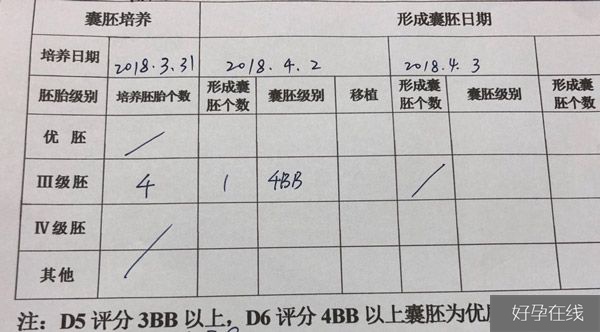 囊胚培养 形成囊胚日期
培养日期 2018.3.31 2018.4.2 2018.4.3
胚胎级别 培养胚胎个数 形成囊胚个数 囊胚级别 移植 形成囊胚个数 囊胚级别 形成囊胚个数
优 胚 /
III级胚 4 1 4BB /
IV级胚 /
其他
注：D5 评分 3BB 以上，D6 评分 4BB 以上囊胚为优
好孕在线